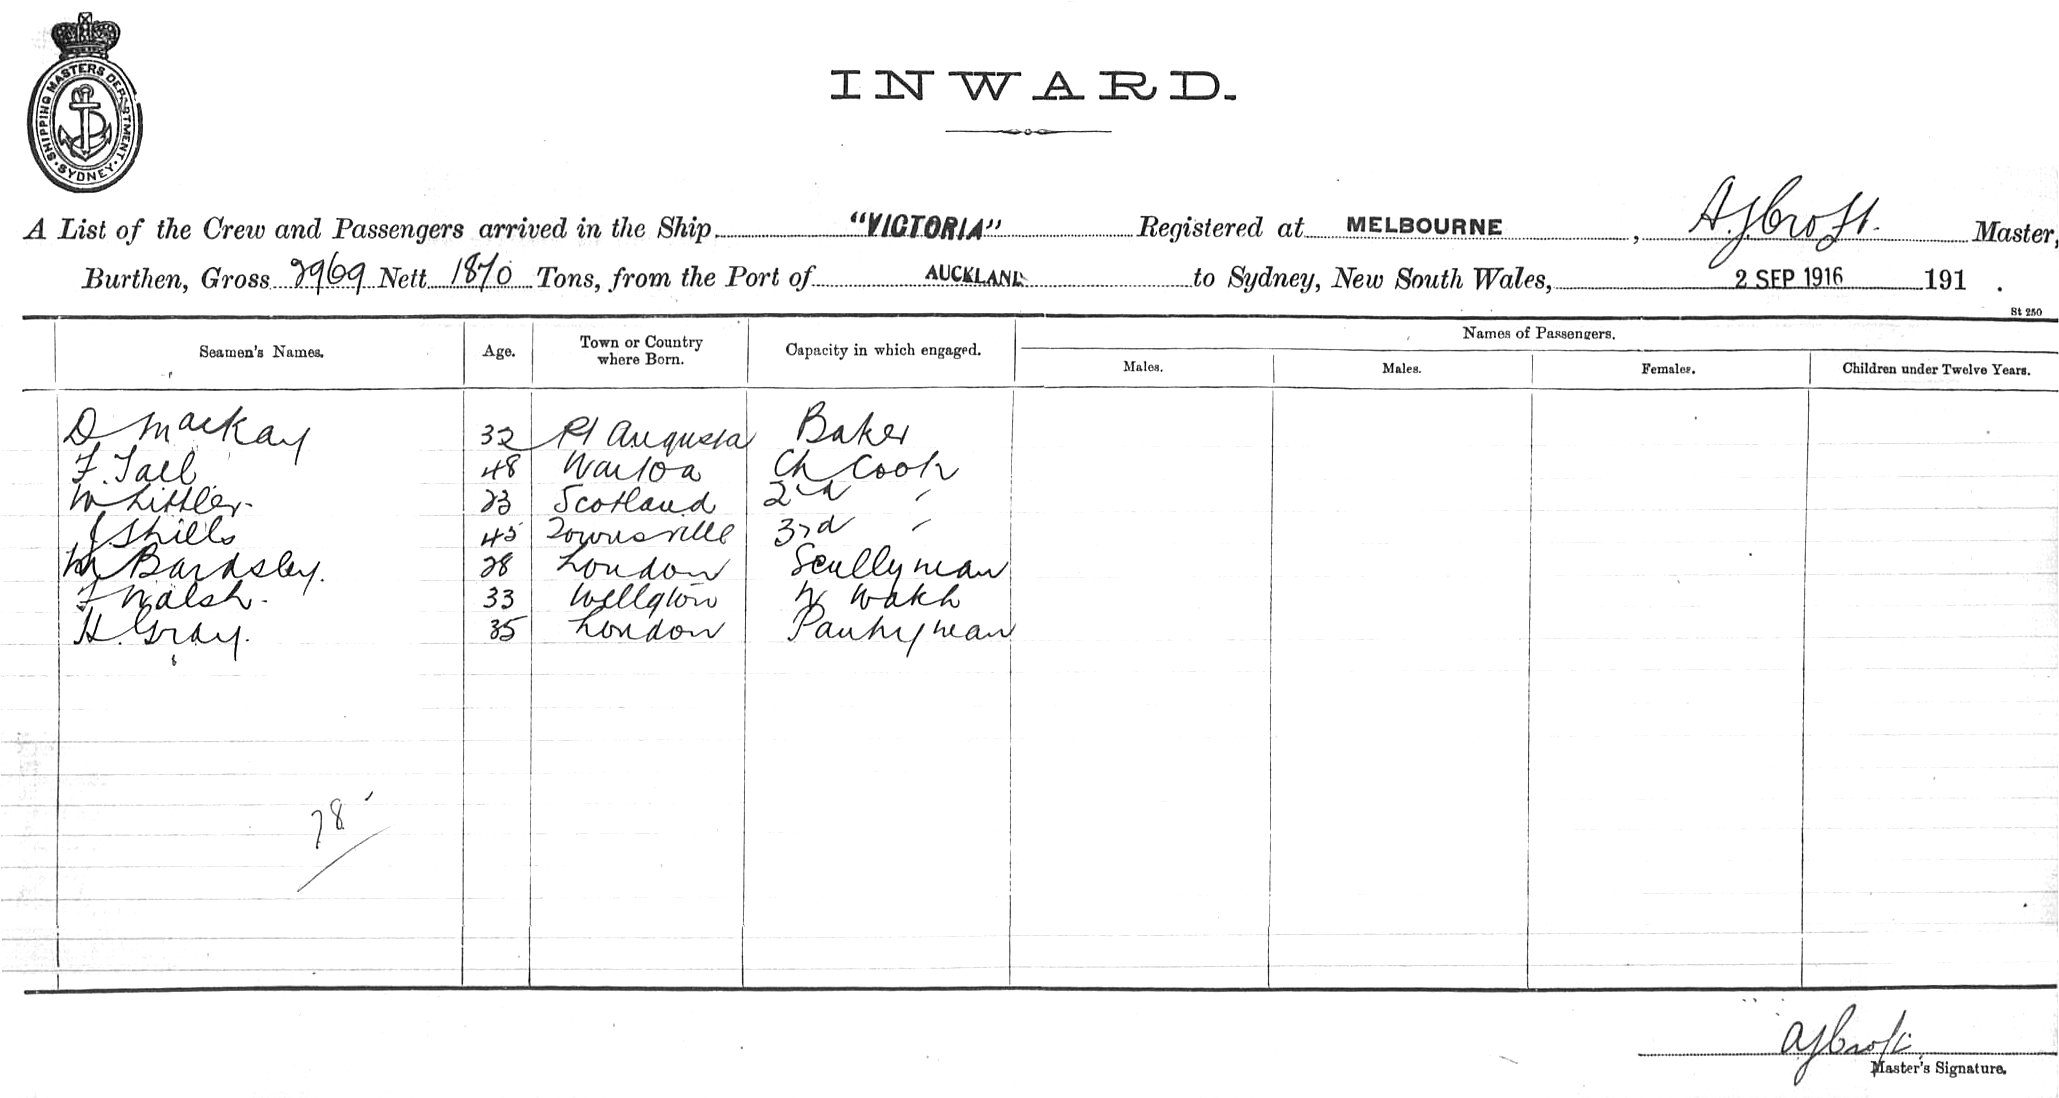 SHIPPING MASTERS DEPARTMENT. SYDNEY
INWARD.
A List of the Crew and Passengers arrived in the Ship "VICTORIA" Registered at MELBOURNE, A.J. Croft. Master,
Burthen, Gross 2969 Nett 1870 Tons, from the Port of AUCKLAND to Sydney, New South Wales, 2 SEP 1916 191 .
St 250
Seamen's Names. Age. Town or Country where Born. Capacity in which engaged. Names of Passengers.
Males. Males. Females. Children under Twelve Years.
D Mackay 32 Pt Augusta Baker
F. 48 Ch Cook
W Littler 23 Scotland 2nd "
J. 45 Townsville 3rd "
W Bardsley. 28 London Scullyman
F Walsh. 33 Wellgton
H. Gray. 35 London Pantryman
78
AJCroft
Master's Signature.